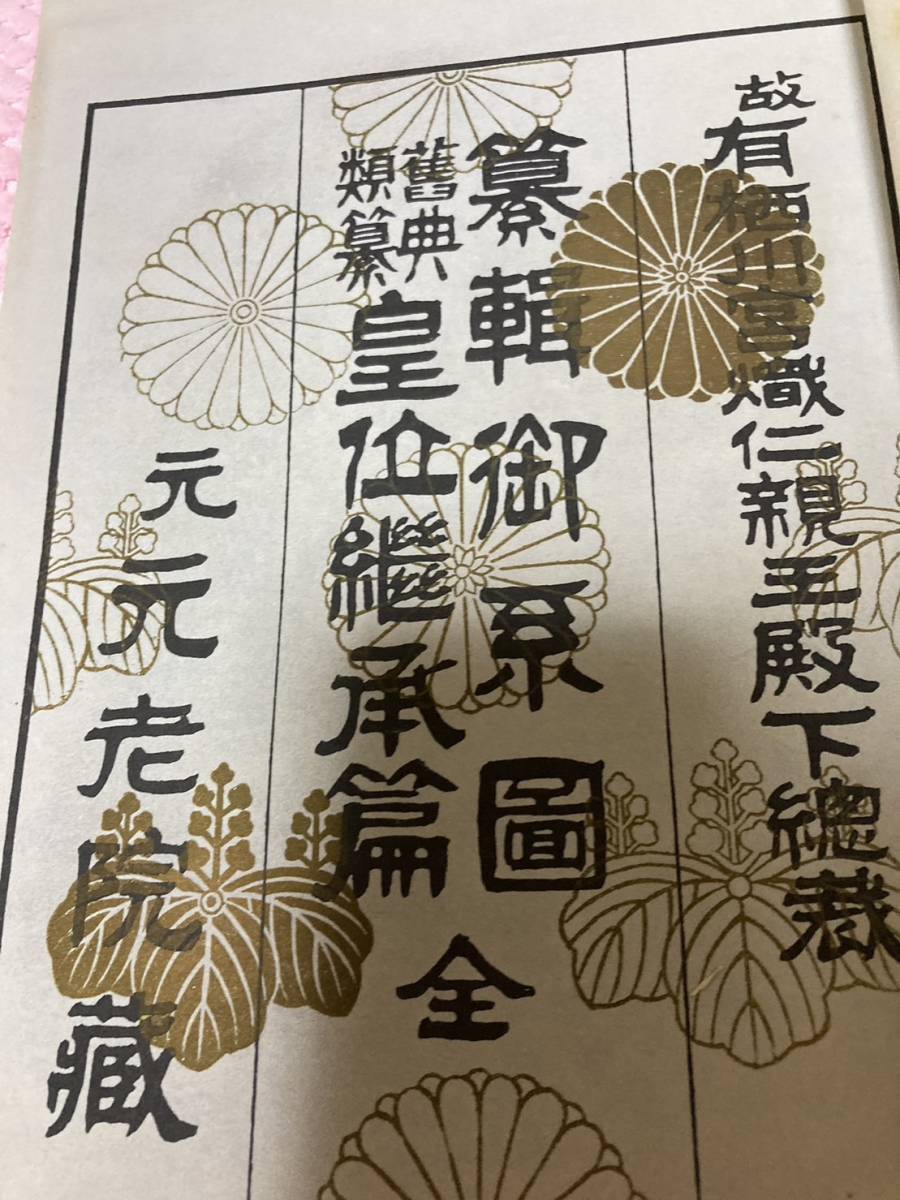 故有栖川宮熾仁親王殿下總裁
纂輯御系圖
舊典類纂皇位繼承篇
全
元元老院藏